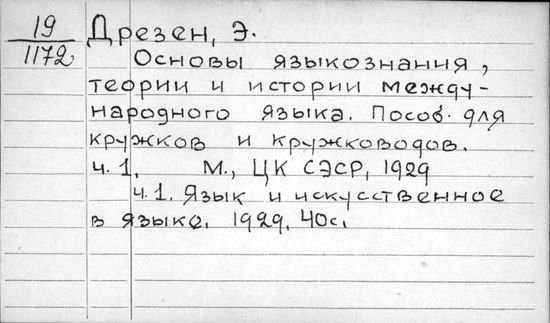 19
1172
Дрезен, Э.
Основы языкознания,
теории и истории между-
народного языка. Пособ. для
кружков и кружководов.
ч. 1, М., ЦК СЭСР, 1929
ч. 1. Язык и искусственное
в языке. 1929, 40с.